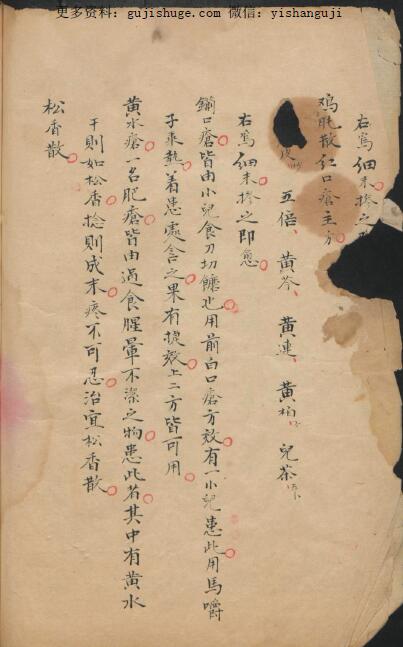 更多资料：gujishuge.com 微信：yishanguji
右為细末掺之
鸡肫散红口瘡主方
皮 五倍、黄芩、黄連、黄柏、兒茶
右為细末掺之即愈
口瘡皆由小兒食刀切饝也用前白口瘡方效有一小兒患此用馬嚼
子乘热着患處含之果有捷效上二方皆可用
黄水瘡一名肥瘡皆由過食腥葷不潔之物患此者其中有黄水
干則如松香捻則成末疼不可忍治宜松香散
松香散